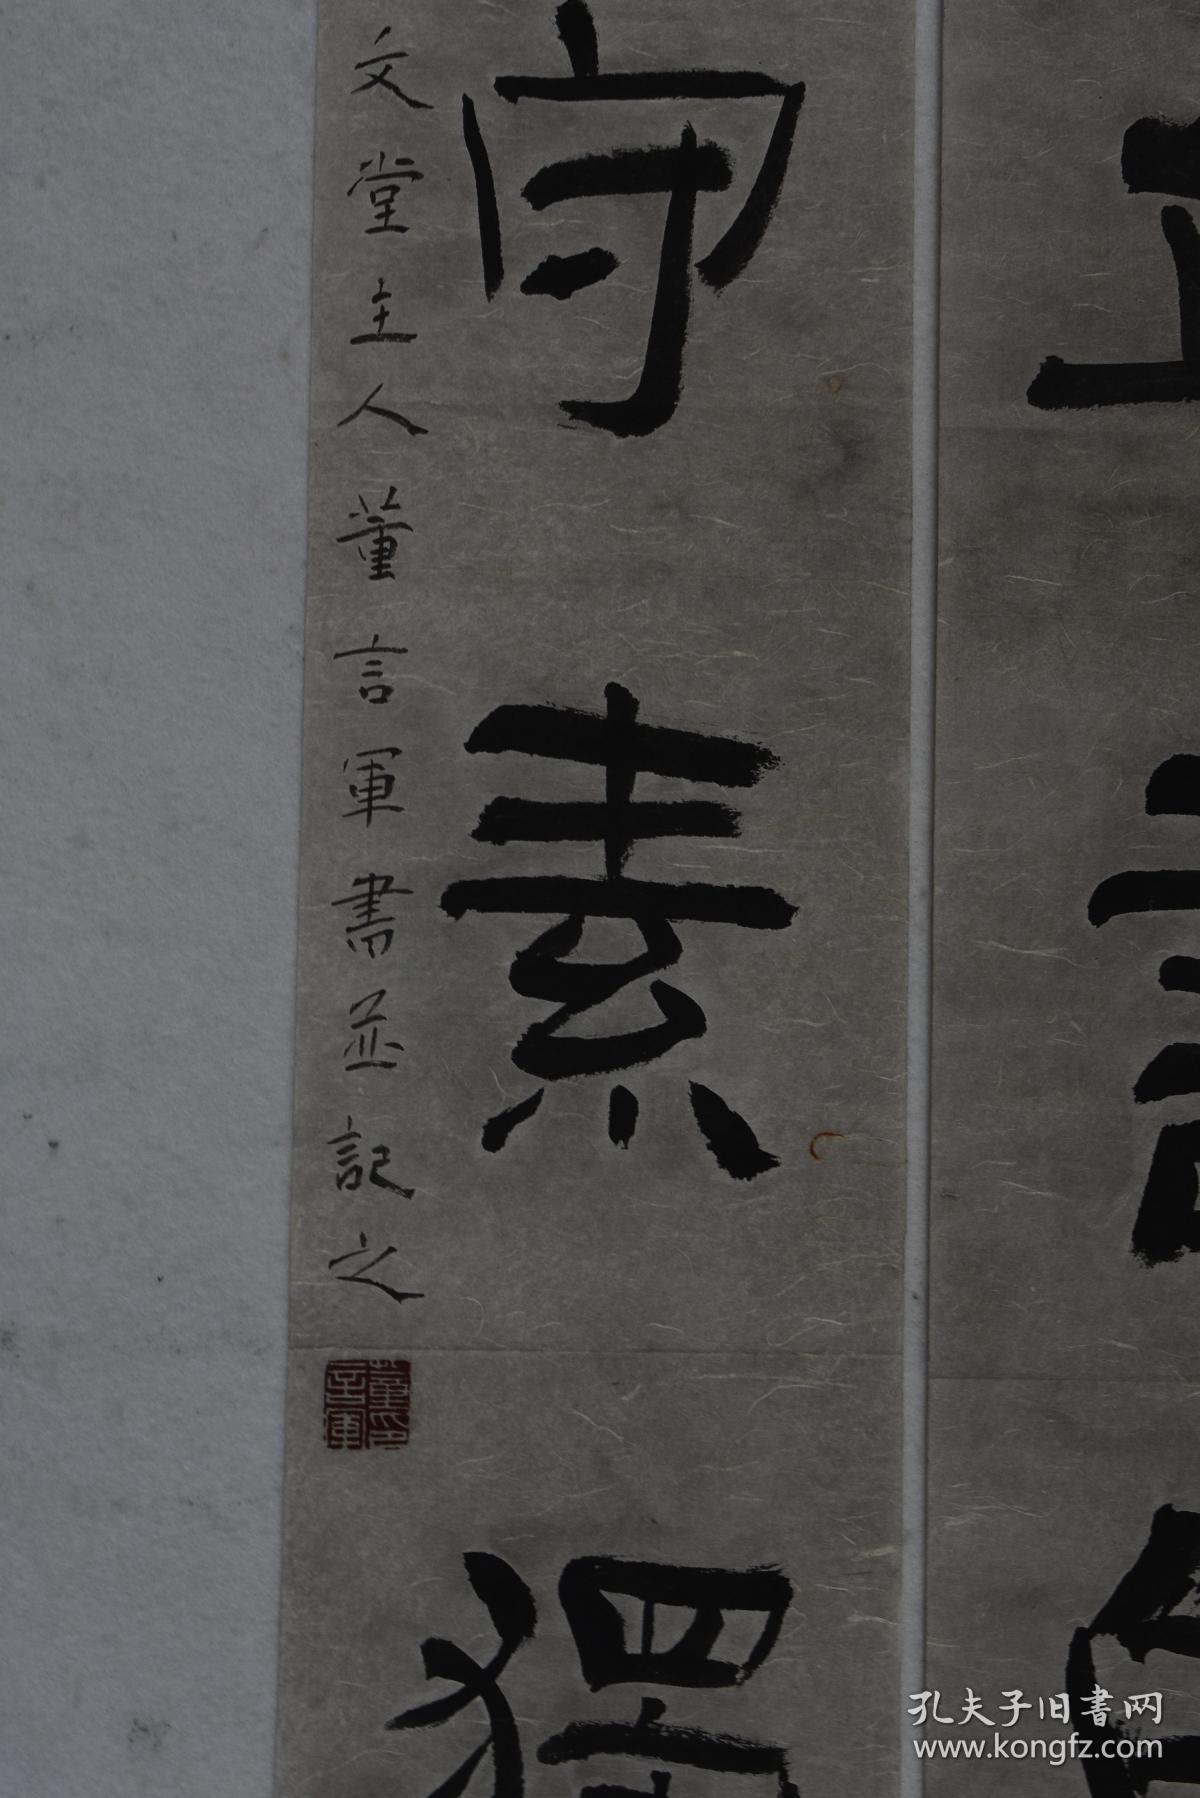 守素獨
文堂主人董言軍書並記之
董言軍印
孔夫子旧書网
www.kongfz.com